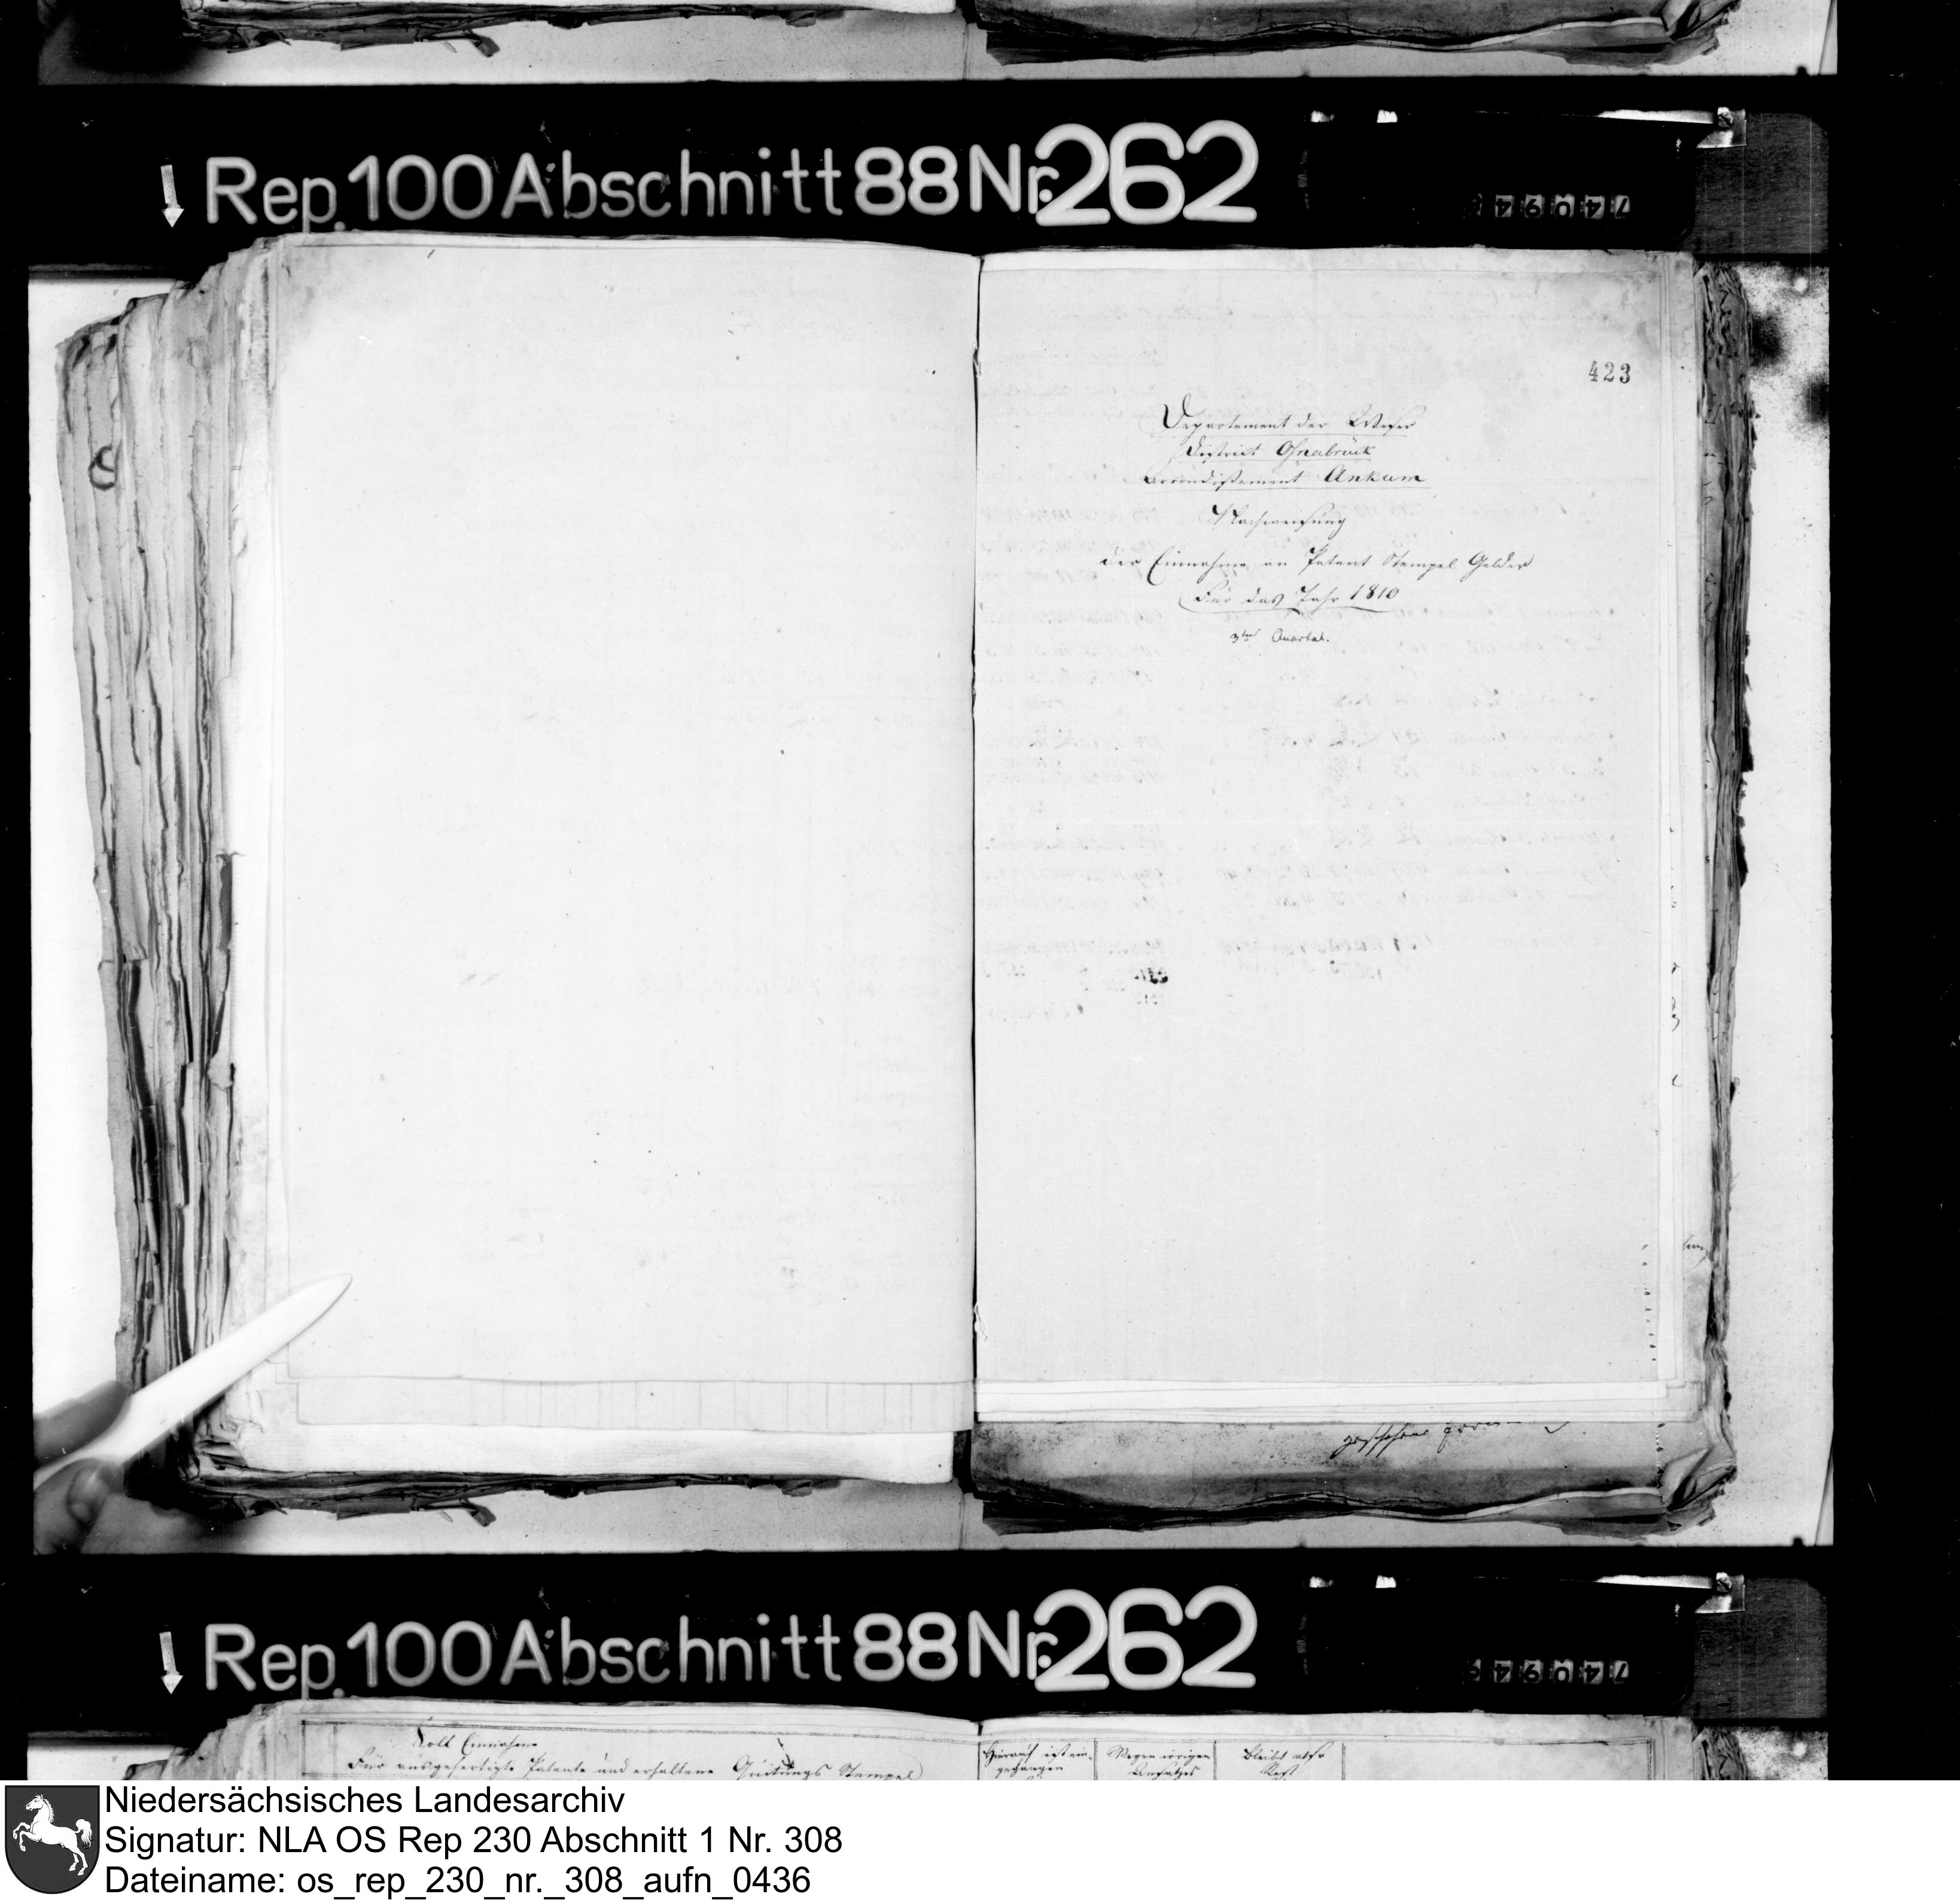 Rep. 100 Abschnitt 88 Nr. 262
423
Departement der Weser
District Osnabrück
Arrondissement Ankum
Nachweisung
der Einnahme an Patent Stempel Gelder
Für das Jahr 1810
3tes Quartal.
Rep. 100 Abschnitt 88 Nr. 262
Soll Einnahme
Für ausgefertigte Patente und erhaltene Quitungs Stempel
Hierauf ist ein-
gegangen
Wegen irrigen
Ansatzes
Bleibt also
Rest
Niedersächsisches Landesarchiv
Signatur: NLA OS Rep 230 Abschnitt 1 Nr. 308
Dateiname: os_rep_230_nr._308_aufn_0436